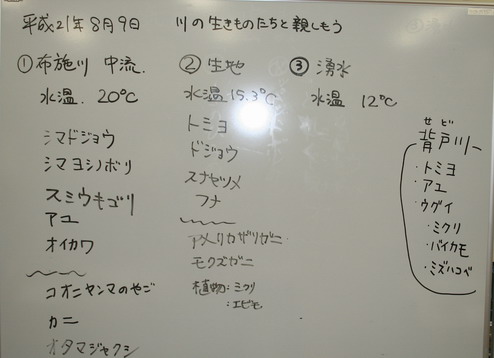 平成21年8月9日 川の生きものたちと親しもう
① 布施川 中流.
水温. 20℃
シマドジョウ
シマヨシノボリ
スミウキゴリ
アユ
オイカワ
コオニヤンマのやご
カニ
オタマジャクシ
② 生地
水温 15.3℃
トミヨ
ドジョウ
スナヤツメ
フナ
アメリカザリガニ
モクズガニ
植物:ミクリ
:エビモ
③ 湧水
水温 12℃
せど
背戸川
・トミヨ
・アユ
・ウグイ
・ミクリ
・バイカモ
・ミズハコベ